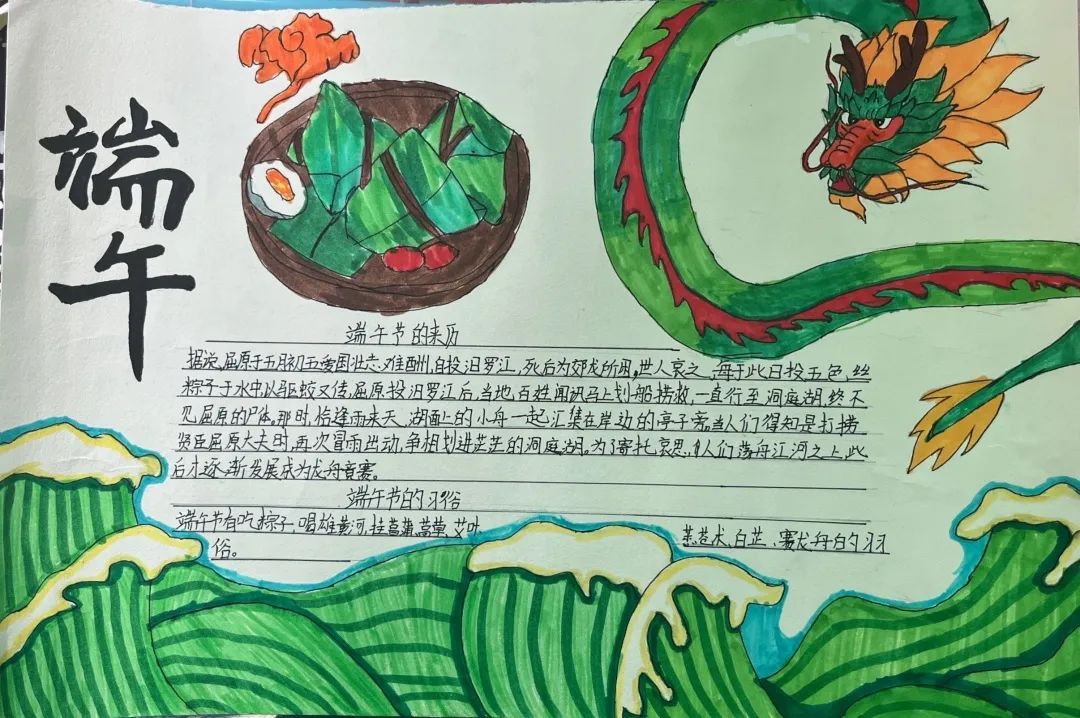 端午
端午节的来历
据说,屈原于五月初五爱国壮志难酬,自投汨罗江,死后为郊龙所困,世人哀之,每于此日投五色,丝
粽子于水中以驱蛟又传,屈原投汨罗江后,当地百姓闻讯马上划船捞救,一直行至洞庭湖,终不
见屈原的尸体。那时,恰逢雨来天,湖面上的小舟一起汇集在岸边的亭子旁。当人们得知是打捞
贤臣屈原大夫时,再次冒雨出动,争相划进茫茫的洞庭湖。为了寄托哀思,人们荡舟江河之上,此
后才逐渐发展成为龙舟竞赛。
端午节的习俗
端午节有吃粽子,喝雄黄河,挂菖蒲,蒿草,艾叶 苍术、白芷、赛龙舟的习
俗。